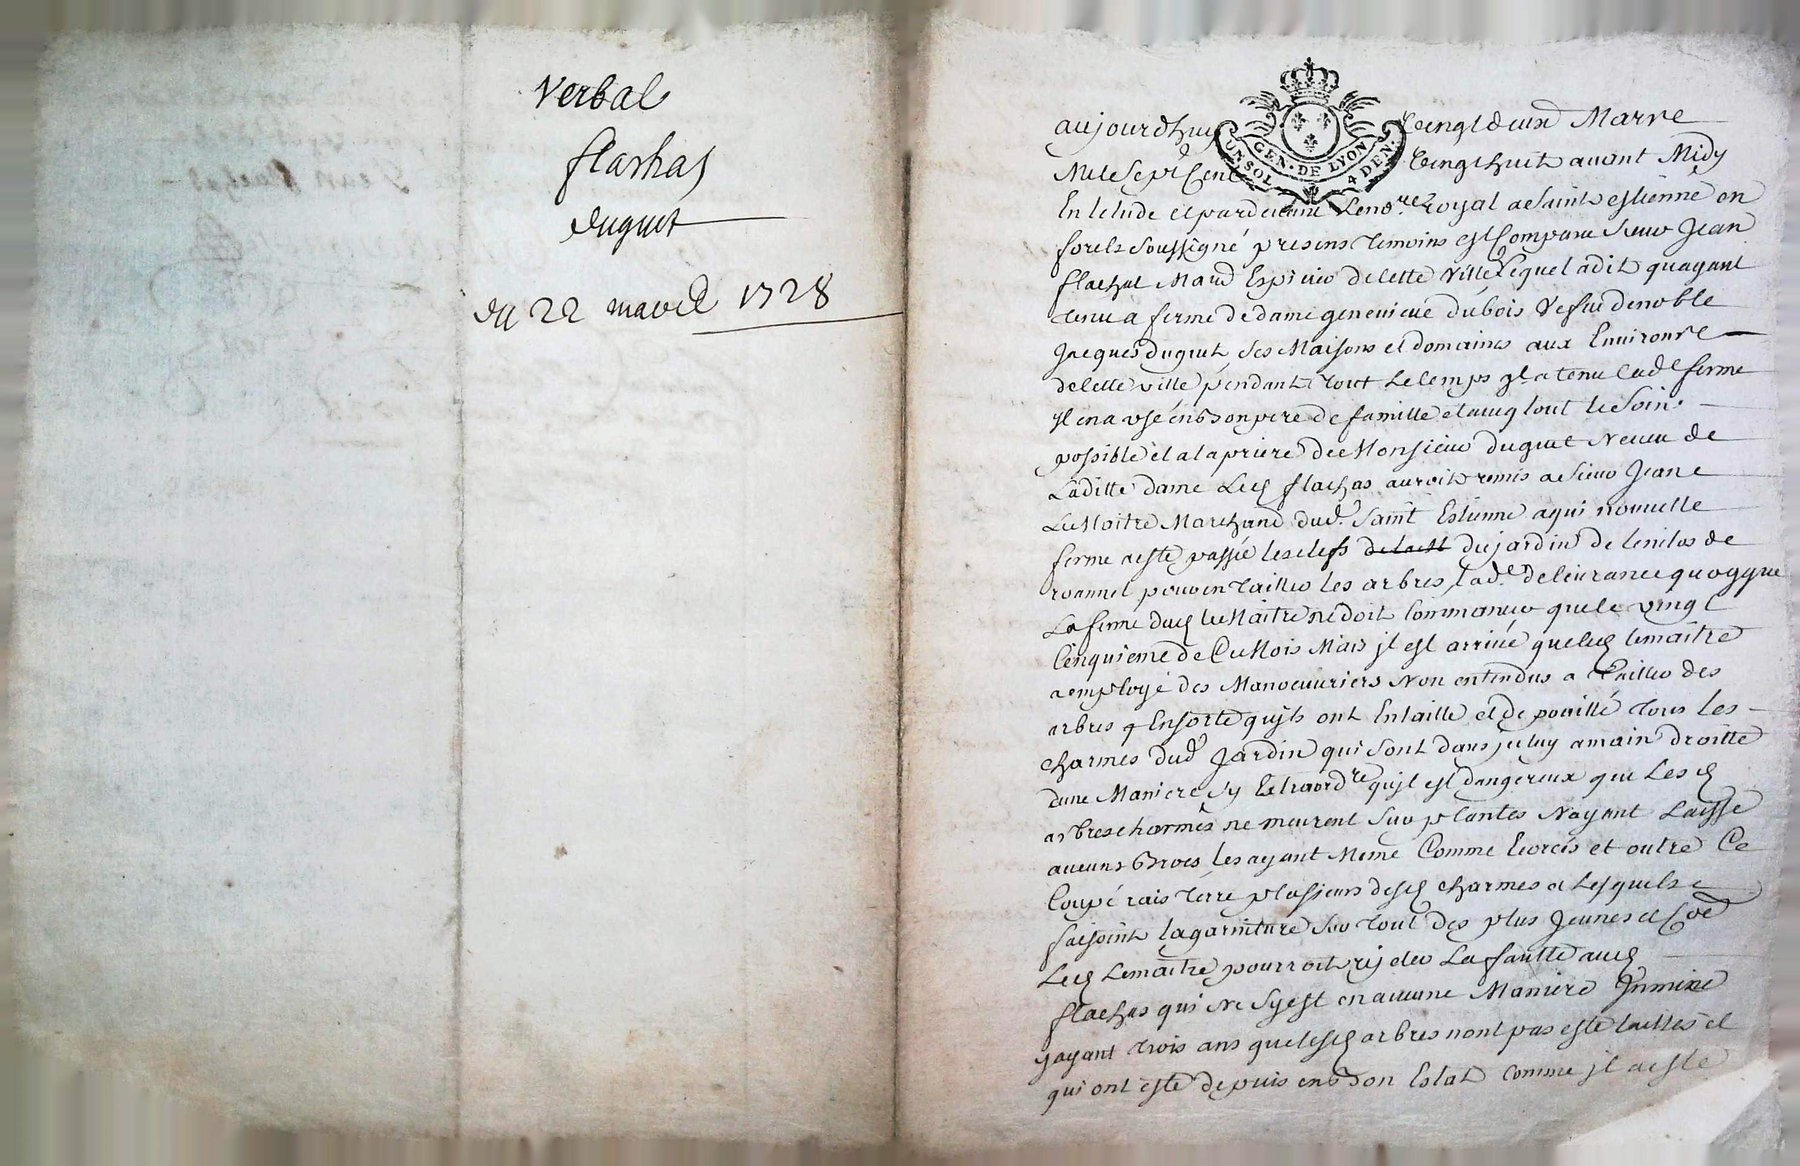 Verbal
flachas
duguet
du 22 mars 1728
GEN. DE LYON
UN SOL 4 DEN.
aujourdhuy vingtdeux Mars
Mile Sept Cent vingt huit avant Midy
En letude et pardevant Le no.re royal a Saint estienne en
forets soussigné presens temoins est Comparu Sieur Jean
flachat Mard Espicier de cette ville Lequel a dit quayant
tenu a ferme de dame genevieve dubois vefue de noble
Jacques duguet ses Maisons et domaines aux Environs
de cette ville pendant tout Le temps ql a tenu lad.e ferme
Jl en a vsé en bon pere de famille et avec tout le soin
possible et a la priere de Monsieur duguet Neveu de
Laditte dame Led flachas auroit remis a Sieur Jean
LeMaitre Marchand dud. Saint Estienne a qui nouvelle
ferme a este passée les clefs du jardin de lenclos de
roannel pour en tailler les arbres, lad.e delivrance quoyque
La ferme dud LeMaitre ne doit Commancer que le vingt
Cinquieme de Ce Mois Mais jl est arrivé que led lemaitre
a employé des Manoeuuriers Non entendus a Tailler des
arbres Ensorte quils ont Entaillé et depouillé tous Les
charmes dud Jardin qui sont dans jceluy a main droitte
dune Maniere sy Extraord.re quil est dangereux que Lesd
arbres charmes ne meurent sur plantes Nayant Laissé
aucuns Brocs, les ayant Meme Comme Ecorcés et outre Ce
Coupé rais terre plusieurs desd charmes
faisoint la garniture sur tout des plus Jeunes et
Led Lemaitre pourroit rejeter La faulte aud
flachas qui Ne sy est en aucune Maniere Jnmixé
y ayant trois ans que lesd arbres nont pas este taillés et
qui ont este depuis en bon Estat Comme jl a este